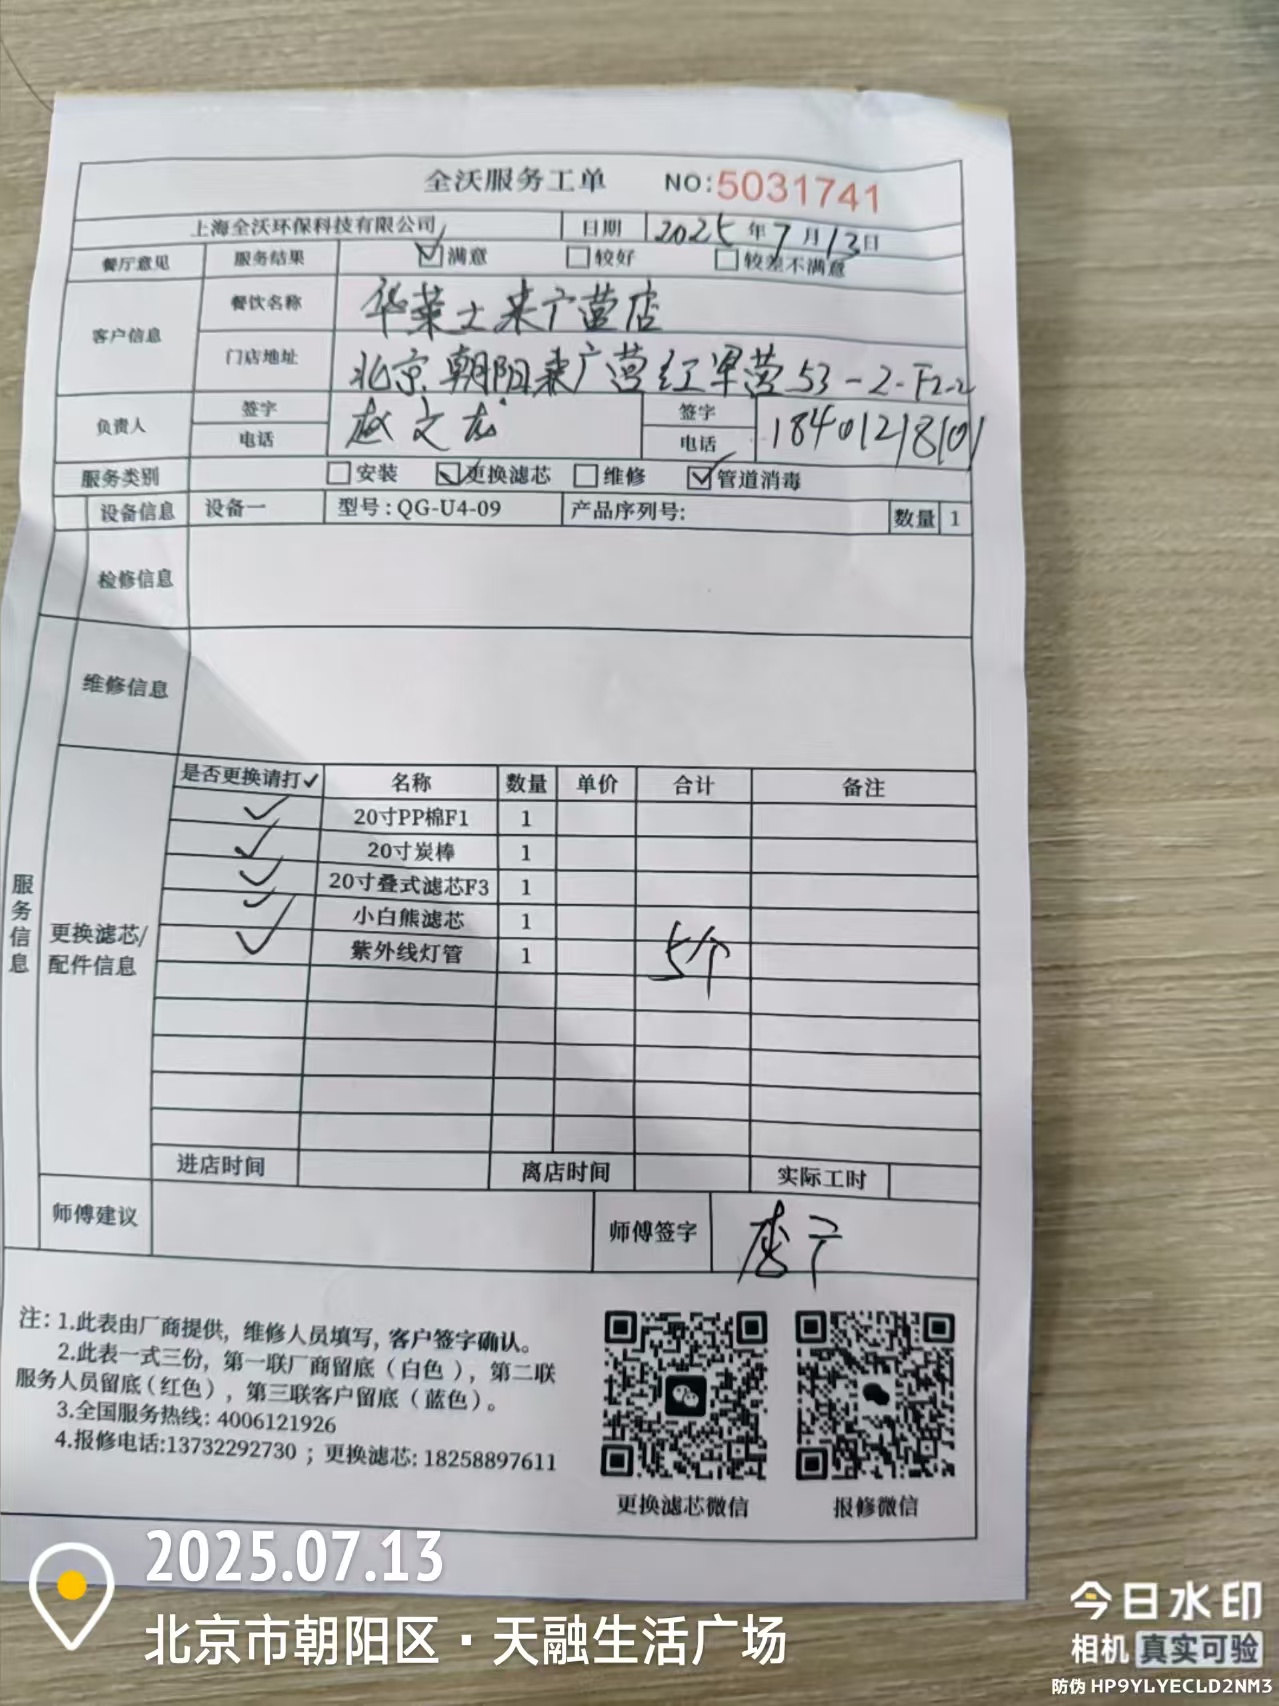 全沃服务工单 NO:5031741
上海全沃环保科技有限公司 日期 2025年7月13日
餐厅意见 服务结果 ☑满意 □较好 □较差不满意
客户信息 餐饮名称 华莱士来广营店
门店地址 北京朝阳来广营红军营53-2-F2-2
负责人 签字 电话 赵文龙 签字 电话 18401218101
服务类别 □安装 ☑更换滤芯 □维修 ☑管道消毒
设备信息 设备一 型号:QG-U4-09 产品序列号: 数量 1
检修信息
维修信息
服务信息
更换滤芯/配件信息
是否更换请打✓ 名称 数量 单价 合计 备注
✓ 20寸PP棉F1 1
✓ 20寸炭棒 1
✓ 20寸叠式滤芯F3 1
✓ 小白熊滤芯 1
✓ 紫外线灯管 1 5个
进店时间 离店时间 实际工时
师傅建议 师傅签字
注:1.此表由厂商提供,维修人员填写,客户签字确认。
2.此表一式三份,第一联厂商留底(白色),第二联
服务人员留底(红色),第三联客户留底(蓝色)。
3.全国服务热线:4006121926
4.报修电话:13732292730;更换滤芯:18258897611
更换滤芯微信 报修微信
2025.07.13
北京市朝阳区·天融生活广场
今日水印
相机 真实可验
防伪 HP9YLYECLD2NM3